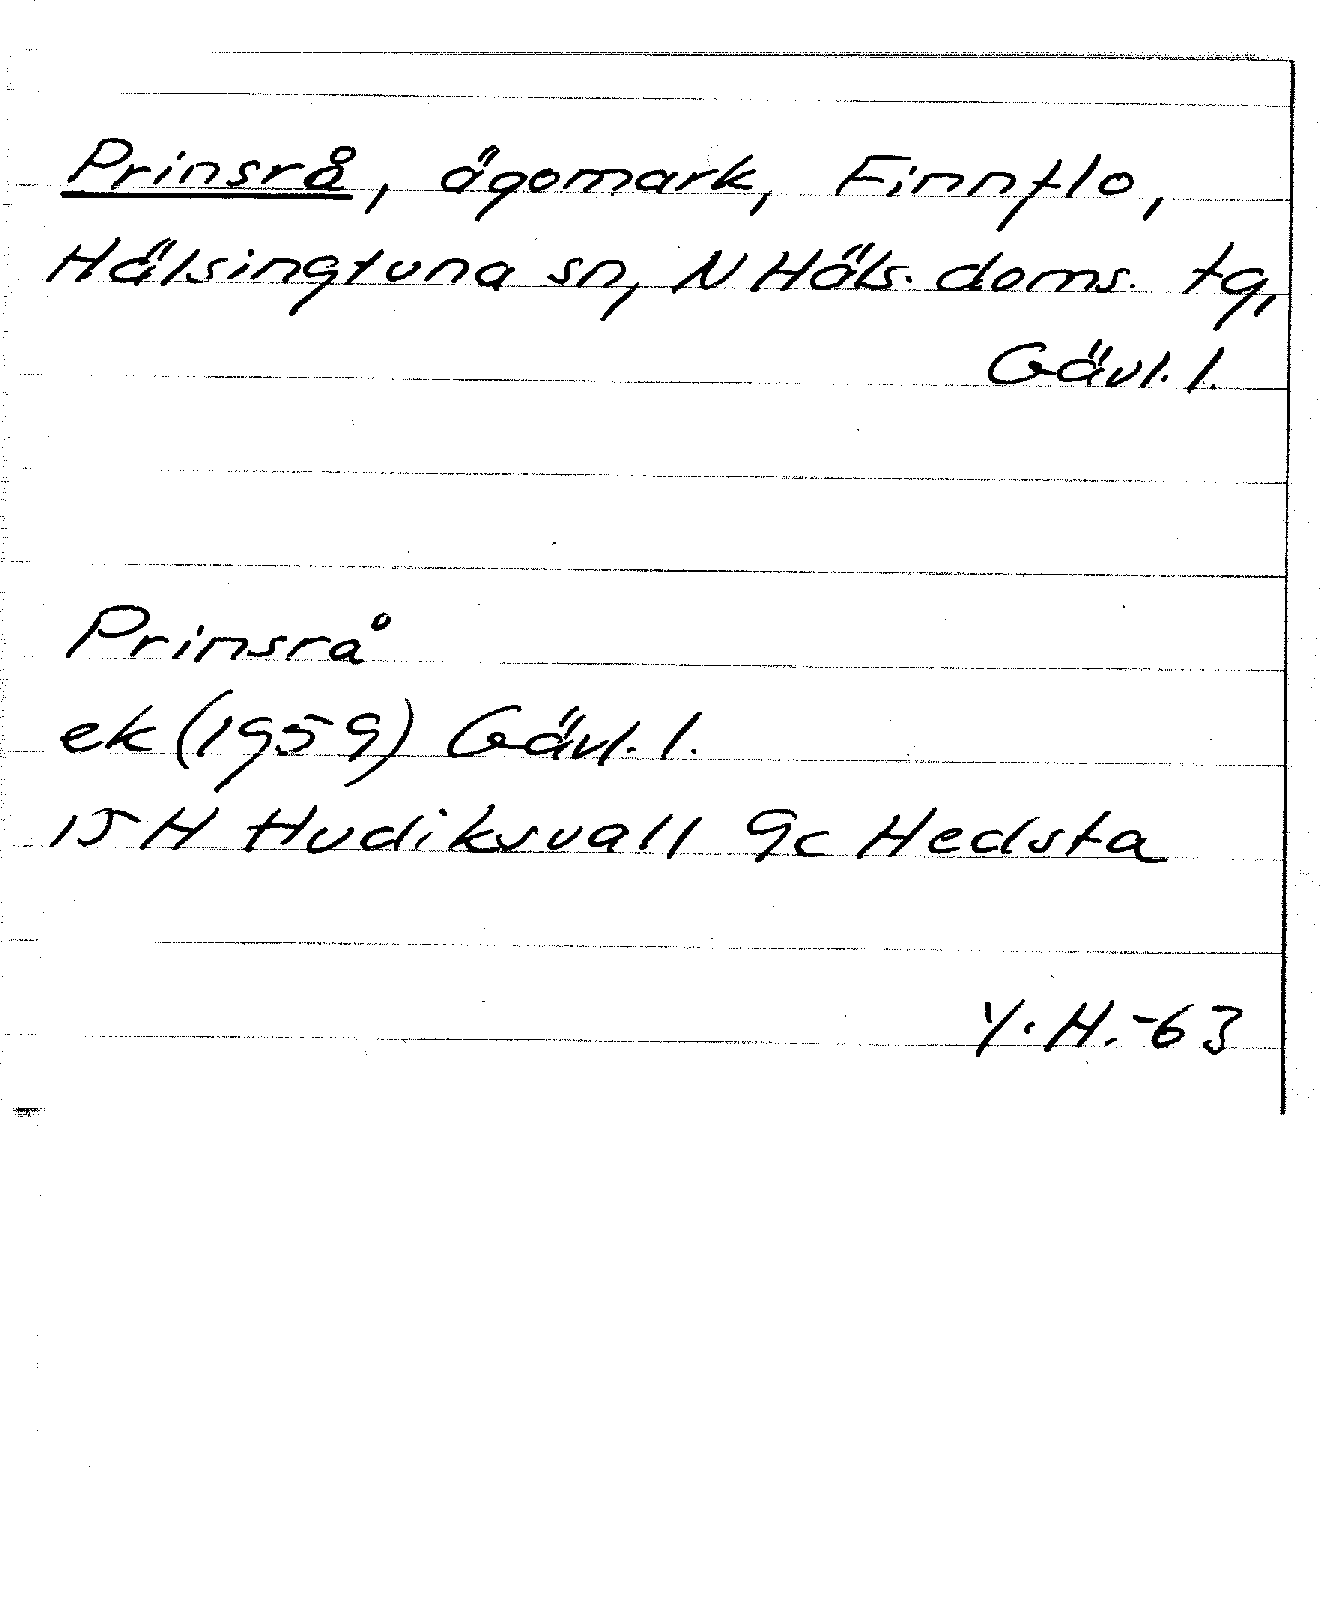 Prinsrå, ägomark, Finnflo,
Hälsingtuna sn, N Häls. doms. tg,
Gävl. l.
Prinsrå
ek (1959) Gävl. l.
15 H Hudiksvall 9c Hedsta
Y. H. -63